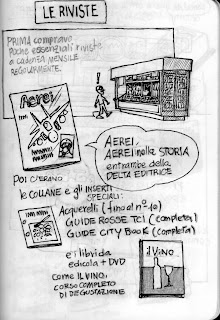 LE RIVISTE
PRIMA compravo
poche essenziali riviste
a cadenza MENSILE
REGOLARMENTE.
!
Aerei
AEREI,
AEREI nella STORIA
entrambe della
DELTA EDITRICE
POI C'ERANO
le COLLANE e gli INSERTI
SPECIALI:
Acquerelli (fino al n° 10)
GUIDE ROSSE TCI (completa)
GUIDE CITY BOOK (completa)
e i libri da
edicola + DVD
COME IL VINO,
CORSO COMPLETO
DI DEGUSTAZIONE
il VINO